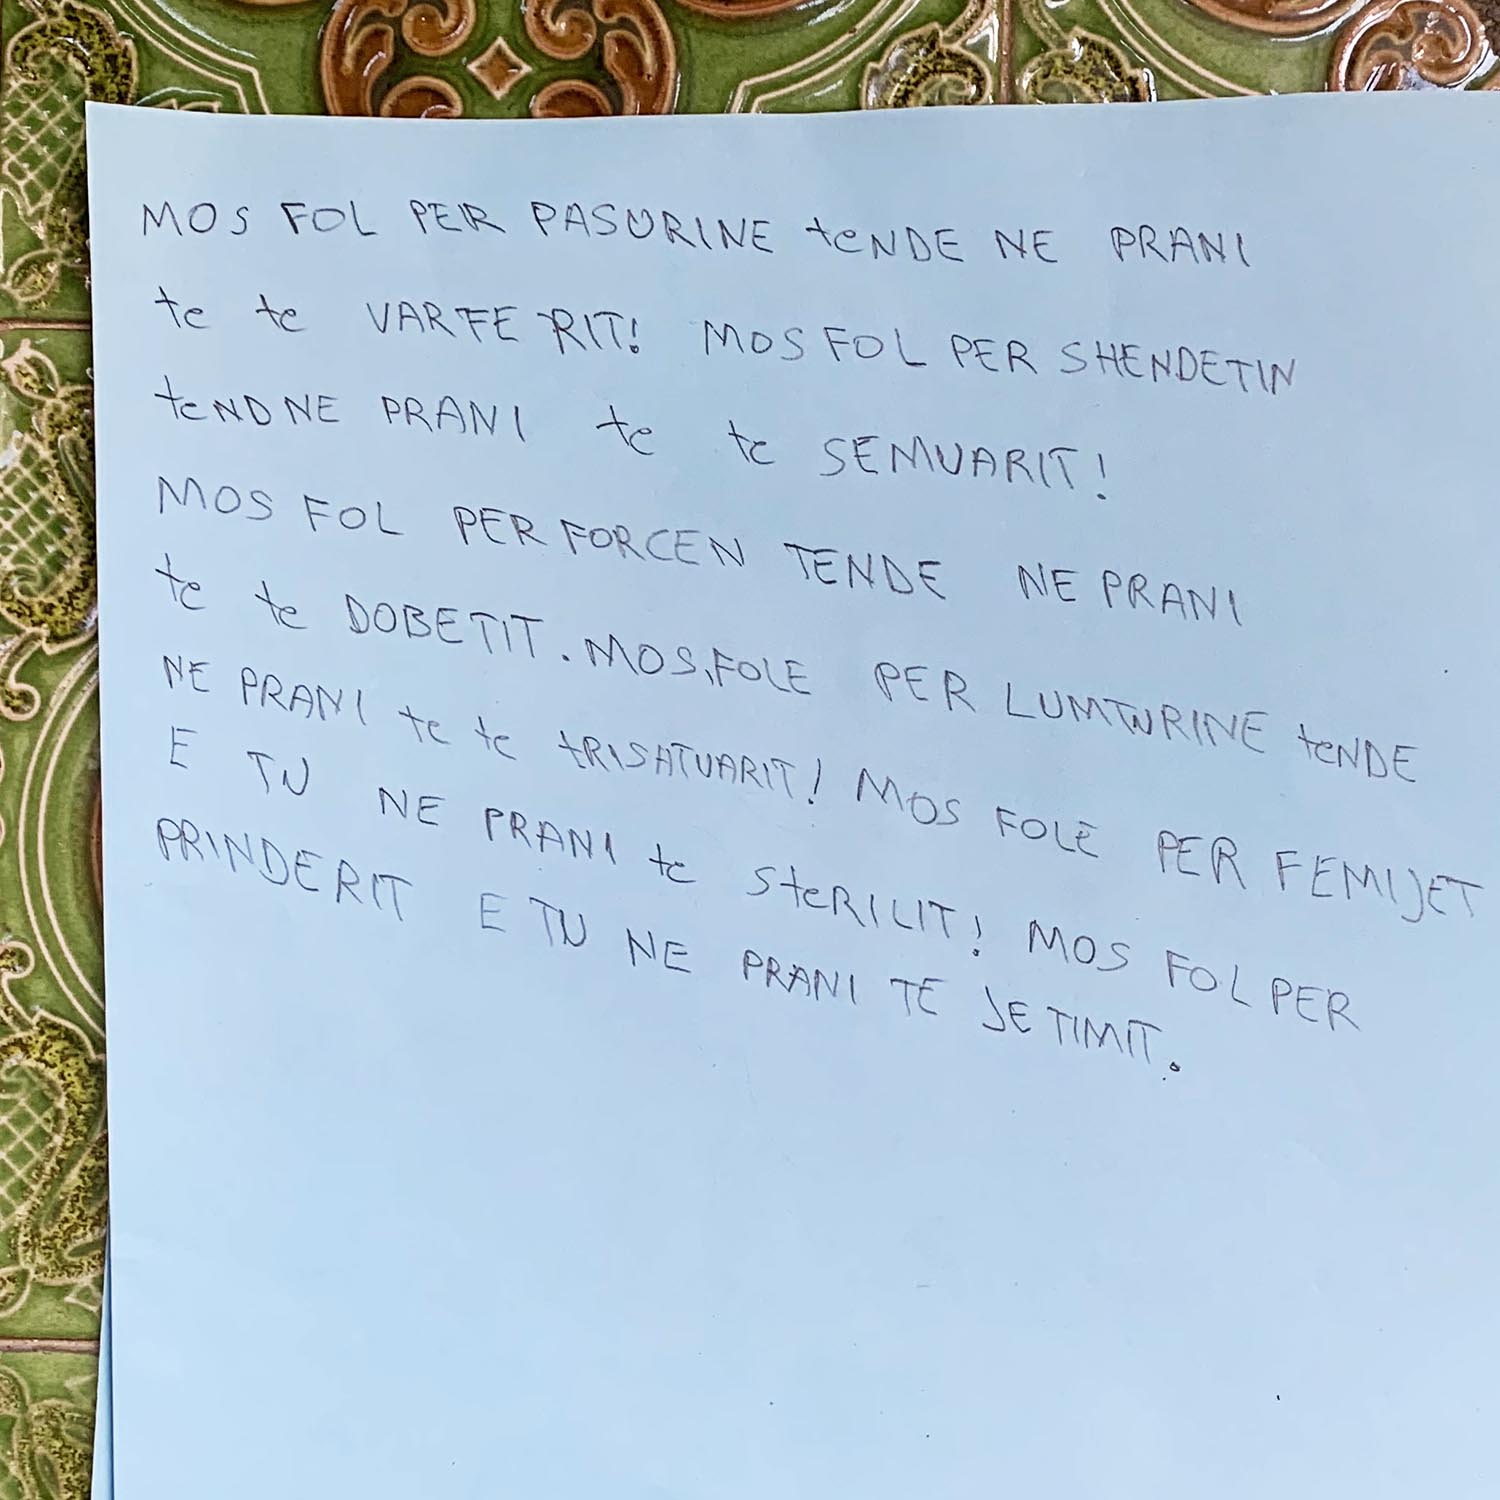 MOS FOL PER PASURINE tENDE NE PRANI
te te VARFERIT! MOS FOL PER SHENDETIN
tENDNE PRANI te te SEMUARIT!
MOS FOL PER FORCEN TENDE NE PRANI
te te DOBETIT. MOS FOLE PER LUMTURINE tENDE
NE PRANI te te tRISATUARIT! MOS FOLE PER FEMIJET
E TU NE PRANI te SteRILIT! MOS FOL PER
PRINDERIT E TU NE PRANI TE JETIMIT.